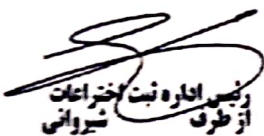 رئیس اداره ثبت اختراعات
از طرف شیروانی